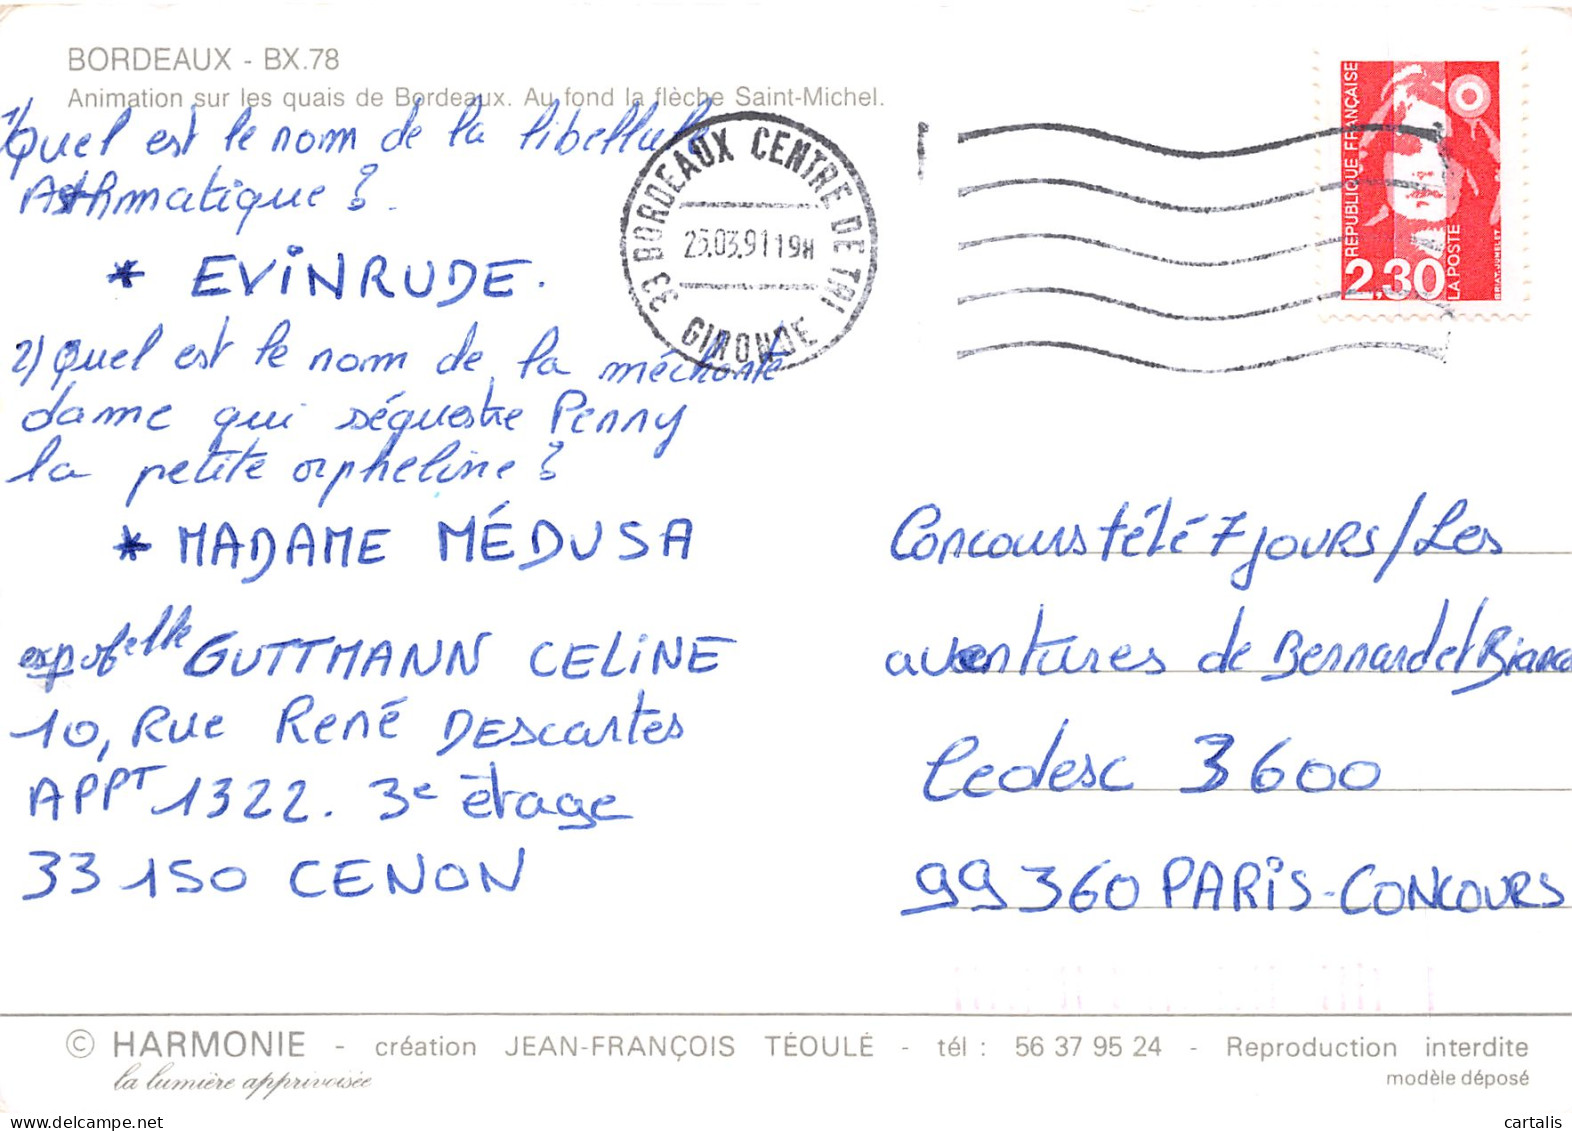 BORDEAUX - BX.78
Animation sur les quais de Bordeaux. Au fond la flèche Saint-Michel.
1) Quel est le nom de la libellule
Asthmatique ?
* EVINRUDE.
2) Quel est le nom de la méchante
dame qui séquestre Penny
la petite orpheline ?
* MADAME MÉDUSA
GUTTMANN CELINE
10, Rue René DEScartes
APPT 1322. 3e étage
33150 CENON
33 BORDEAUX CENTRE DE TRI
25.03.91 19H
GIRONDE
REPUBLIQUE FRANÇAISE
2,30
LA POSTE
BRIAT-JUMELET
Concours télé 7 jours / Les
aventures de Bernard et Bianca
Cedesc 3600
99360 PARIS-CONCOURS
© HARMONIE - création JEAN-FRANÇOIS TÉOULÉ - tél : 56 37 95 24 - Reproduction interdite
la lumière apprivoisée
modèle déposé
cartalis